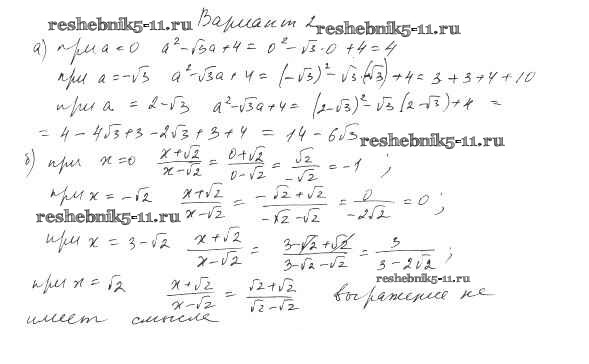 reshebnik5-11.ru Вариант 2 reshebnik5-11.ru
а) при a=0 a²-√3a+4 = 0²-√3·0+4=4
при a=-√3 a²-√3a+4 = (-√3)²-√3·(-√3)+4=3+3+4+10
при a = 2-√3 a²-√3a+4= (2-√3)²-√3(2-√3)+4 =
= 4-4√3+3-2√3+3+4 = 14-6√3 reshebnik5-11.ru
б) при x=0 (x+√2)/(x-√2) = (0+√2)/(0-√2) = √2/(-√2) = -1 ;
при x=-√2 (x+√2)/(x-√2) = (-√2+√2)/(-√2-√2) = 0/(-2√2) = 0 ;
reshebnik5-11.ru
при x = 3-√2 (x+√2)/(x-√2) = (3-√2+√2)/(3-√2-√2) = 3/(3-2√2) ;
reshebnik5-11.ru
при x = √2 (x+√2)/(x-√2) = (√2+√2)/(√2-√2) выражение не
имеет смысла